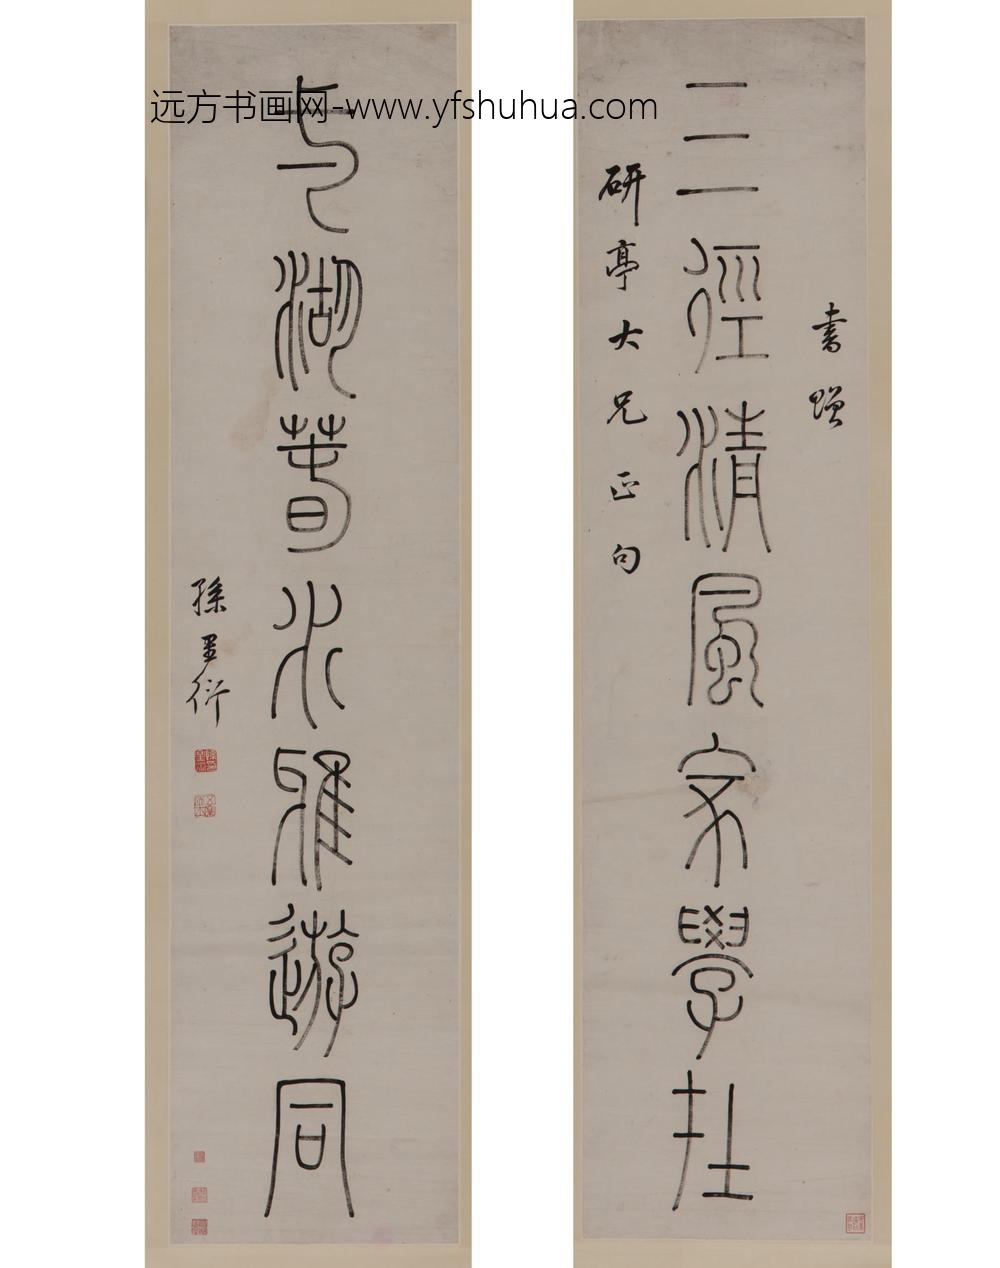 远方书画网-www.yfshuhua.com
三徑清風家學在
書贈
研亭大兄正句
湖春水雅遊同
孫星衍